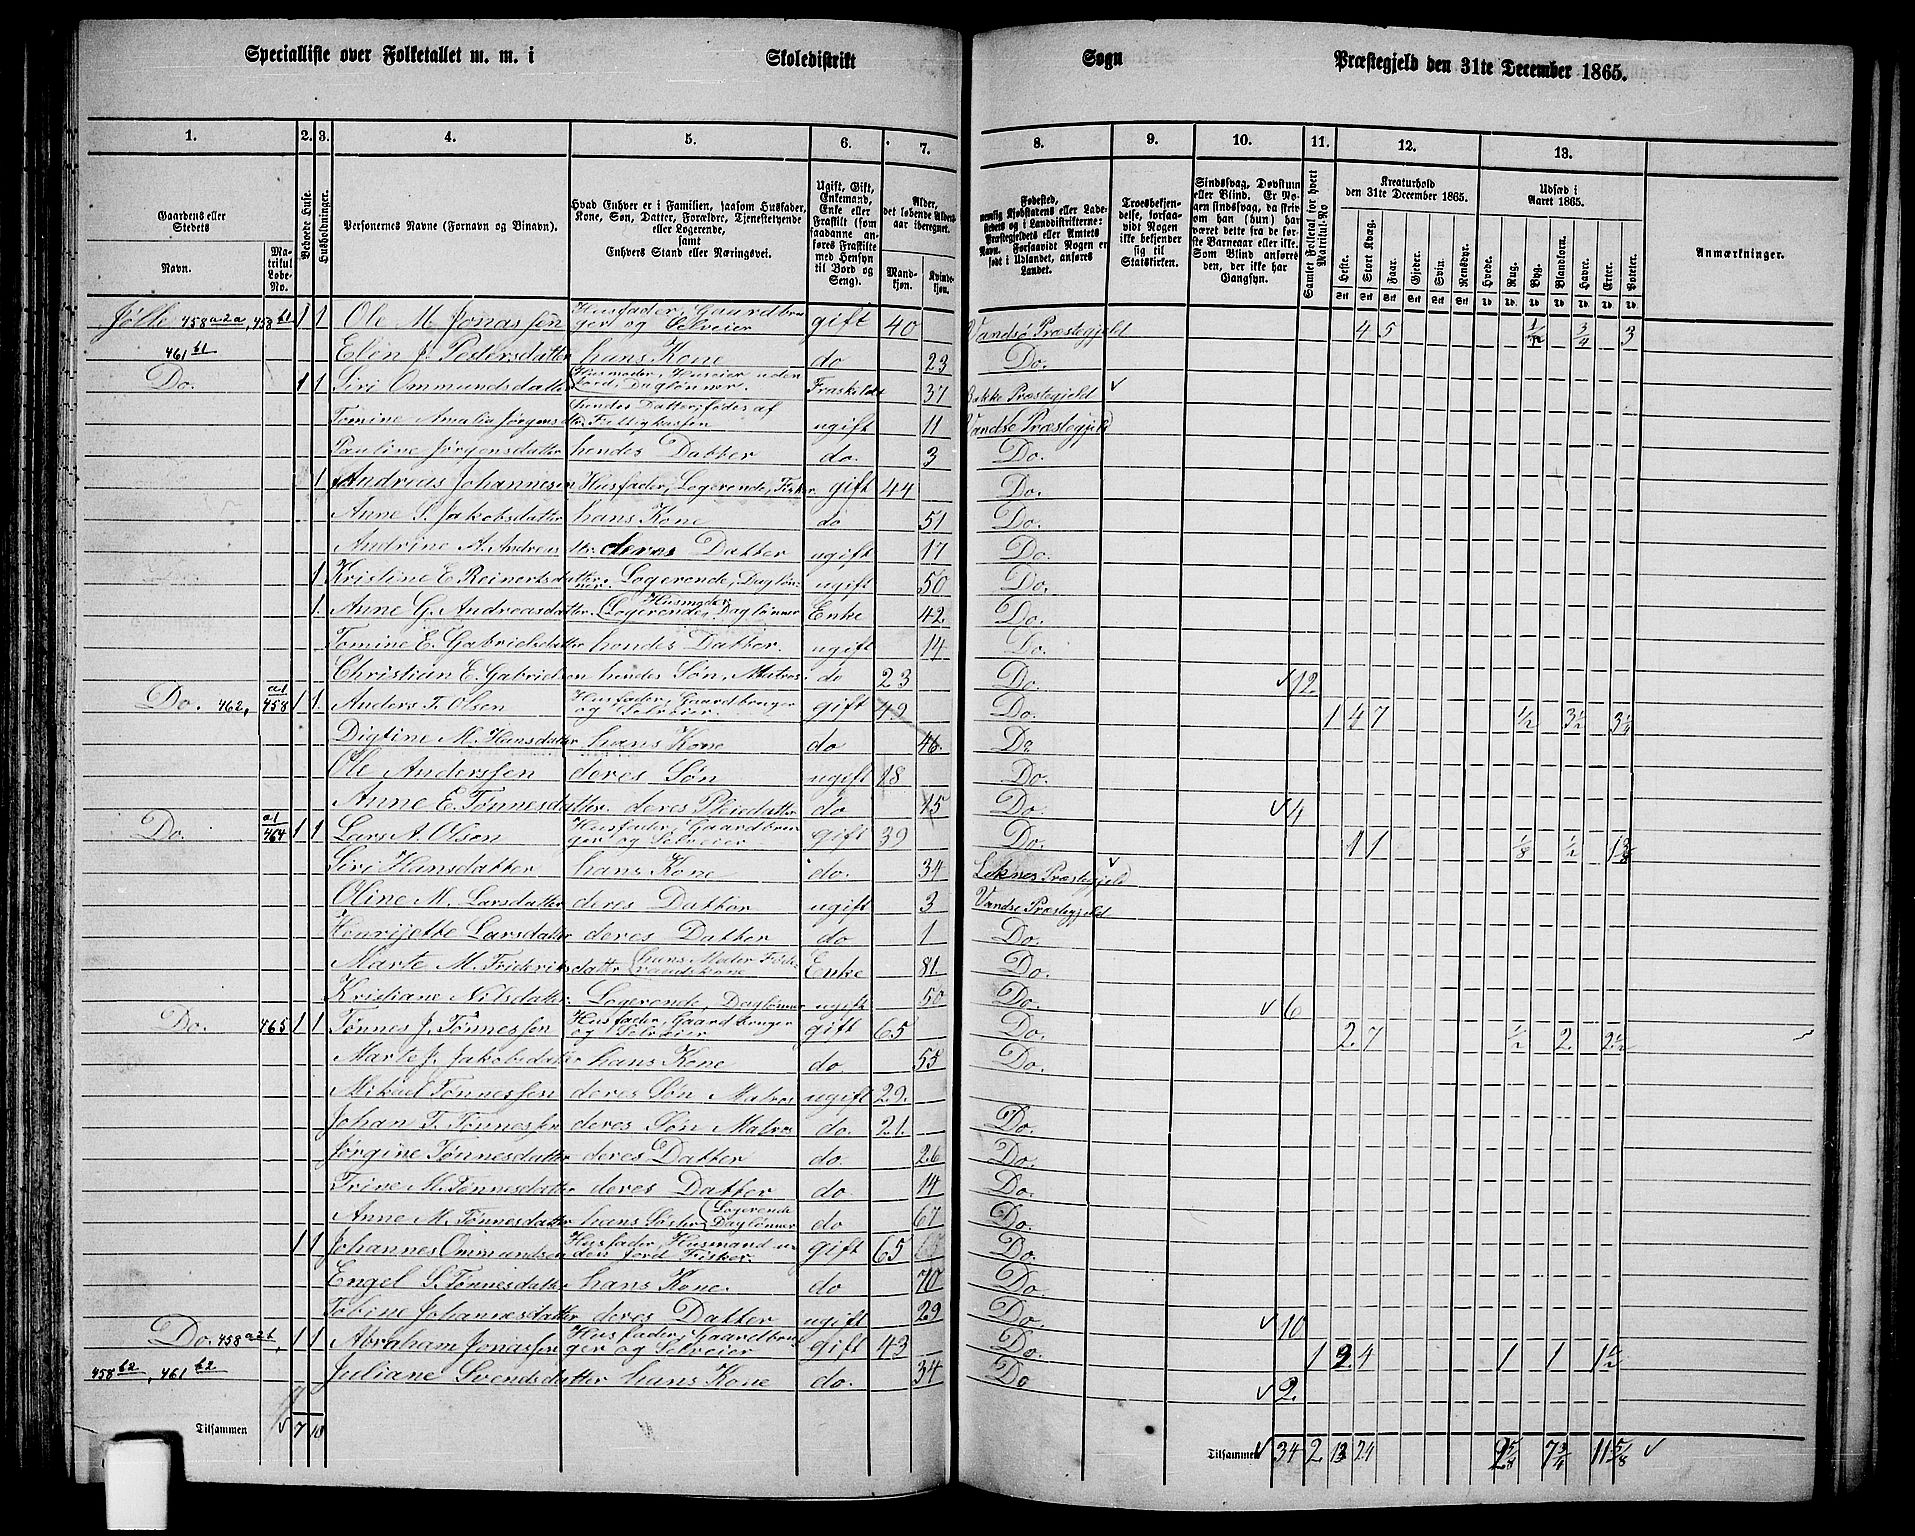 Specialliste over Folketallet m. m. i Skoledistrikt Sogn Præstegjeld den 31te December 1865.
1. 2. 3. 4. 5. 6. 7. 8. 9. 10. 11. 12. 13.
Gaardens eller Stedets
Navn.
Matrikul Løbe-No.
Beboede Huse.
Husholdninger.
Personernes Navne (Fornavn og Binavn).
Hvad Enhver er i Familien, saasom Husfader, Kone, Søn, Datter, Forældre, Tjenestetyende eller Logerende, samt Enhvers Stand eller Næringsvei.
Ugift, Gift, Enkemand, Enke eller Fraskilt (saadanne anføres Fraskilte med Hensyn til Bord og Seng).
Alder, det løbende Alders-aar iberegnet.
Mandkjøn. Kvindekjøn.
Fødested, nemlig Kjøbstadens eller Ladestedets og i Landdistrikterne: Præstegjeldets eller Amtets Navn. Forsaavidt Nogen er født i Udlandet, anføres Landet.
Troesbekjendelse, forsaavidt Nogen ikke bekjender sig til Statskirken.
Sindssvag, Døvstum eller Blind. Er Nogen sindssvag, da skriv om han (hun) har været dette fra de første Barneaar eller ikke. Som Blind anføres den, der ikke har Gangsyn.
Samlet Folketal for hvert Matrikul-No
Kreaturhold den 31te December 1865.
Heste. Stort Kvæg. Faar. Gjeder. Svin. Rensdyr.
Udsæd i Aaret 1865.
Hvede. Rug. Byg. Blandkorn. Havre. Erter. Poteter.
Anmærkninger.
Jølle 458 a2a, 458 b1 1 1 Ole M. Jonassen Husfader, Gaardbruger og Selveier gift 40 Vandsø Præstegjeld 4 5 1/12 3/4 3
461 b1 Elen J. Pedersdatter hans Kone do 23 Do.
Do. 1 1 Siri Ommundsdatter Husmoder, Huseier uden Jord, Daglønner. Fraskildt 37 Bakke Præstegjeld
Tomine Amalia Jørgensdtr. hendes Datter, fødes af Fattigkassen ugift 11 Vandsø Præstegjeld
Pauline Jørgensdatter hendes Datter do. 3 Do.
1 Andreas Johannesen Husfader, Logerende, Fisker gift 44 Do.
Anne S. Jakobsdatter hans Kone do 51 Do.
Andrine A. Andreasdtr. deres Datter ugift 17 Do.
1 Kristine E. Reinertsdatter Logerende, Daglønner. ugift 50 Do.
1 Anne G. Andreasdatter. Husmoder Logerende, Daglønner Enke 42 Do.
Tomine E. Gabrielsdatter hendes Datter. ugift 14 Do.
Christian E. Gabrielsen hendes Søn, Matros do 23 Do. 12.
Do. 462, 458 a1 1 1 Anders T. Olsen Husfader, Gaardbruger og Selveier. gift 49 Do. 1 4 7 1/2 3 1/2 3 1/4
Digtine M. Hansdatter hans Kone do 46 Do
Ole Anderssen deres Søn ugift 18 Do.
Anne E. Tønnesdatter. deres Pleiedatter do 15 Do. 4
Do. 464 a1 1 1 Lars A. Olsen Husfader, Gaardbruger og Selveier gift 39 Do. 1 1 1/8 1/2 1 3/8
Siri Hansdatter hans Kone do. 34 Leknes Præstegjeld
Oline M. Larsdatter deres Datter ugift 3 Vandsø Præstegjeld
Henrijette Larsdatter deres Datter do 1 Do.
Marte M. Frideriksdatter hans Moder Føderaadskone Enke 81. Do.
Kristiane Nilsdatter. Logerende, Daglønner ugift 50 Do. 6
Do. 465 1 1 Tønnes J. Tønnessen Husfader, Gaardbruger og Selveier gift 65 Do. 2. 7 1/2 2. 2 1/2
Marte J. Jakobsdatter hans Kone do. 55 Do.
Mikael Tønnessen deres Søn Matros ugift 29.
Johan T. Tønnessen deres Søn Matros do. 21. Do.
Jørgine Tønnesdatter deres Datter do. 26 Do.
Trine M. Tønnesdatter deres Datter do 14 Do.
Anne M. Tønnesdatter hans Søster Logerende Daglønner do 67 Do.
1 1 Johannes Ommundsen Husfader, Husmand uden Jord Fisker. gift 65 Do.
Engel S. Tønnesdatter hans Kone. do 70 Do.
Tobine Johannesdatter deres Datter ugift 29 Do. 10
Do. 458 a2b, 1 1 Abraham Jonassen Husfader, Gaardbruger og Selveier gift 43 Do. 1 2 4 1 1 1 1/2
458 b2, 461 b2 Juliane Svendsdatter hans Kone do. 34 Do 2.
Tilsammen 7 10 Tilsammen 34 2 13 24 2 5/8 7 3/4 11 5/8